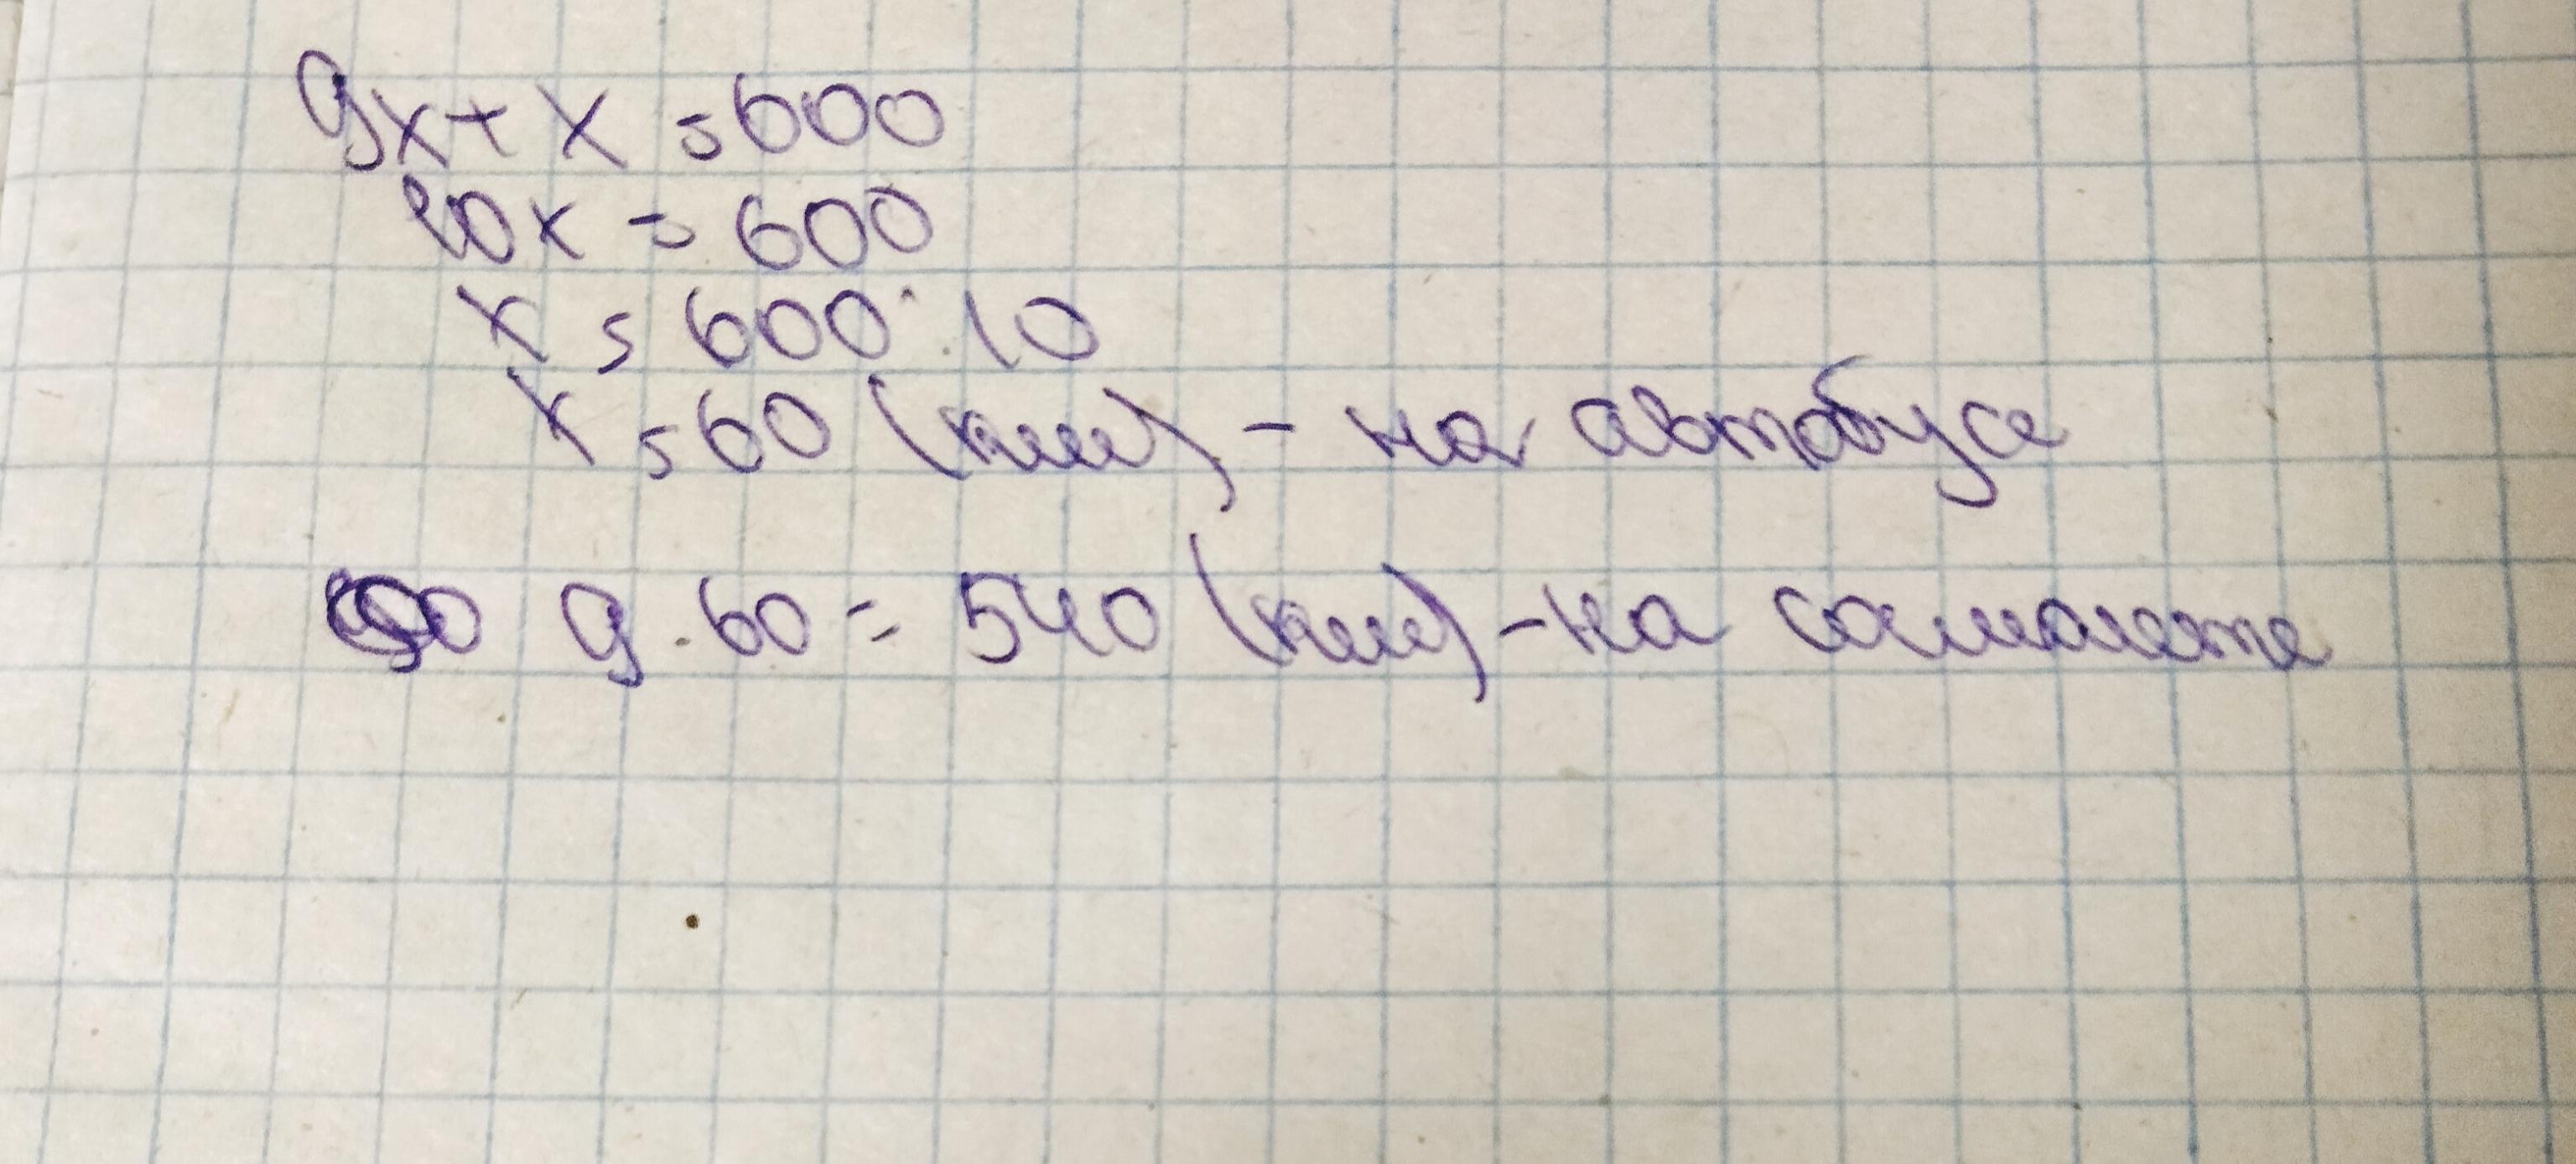 9x + x = 600
10x = 600
x = 600 : 10
x = 60 (км) - на автобусе
9 · 60 = 540 (км) - на самолете